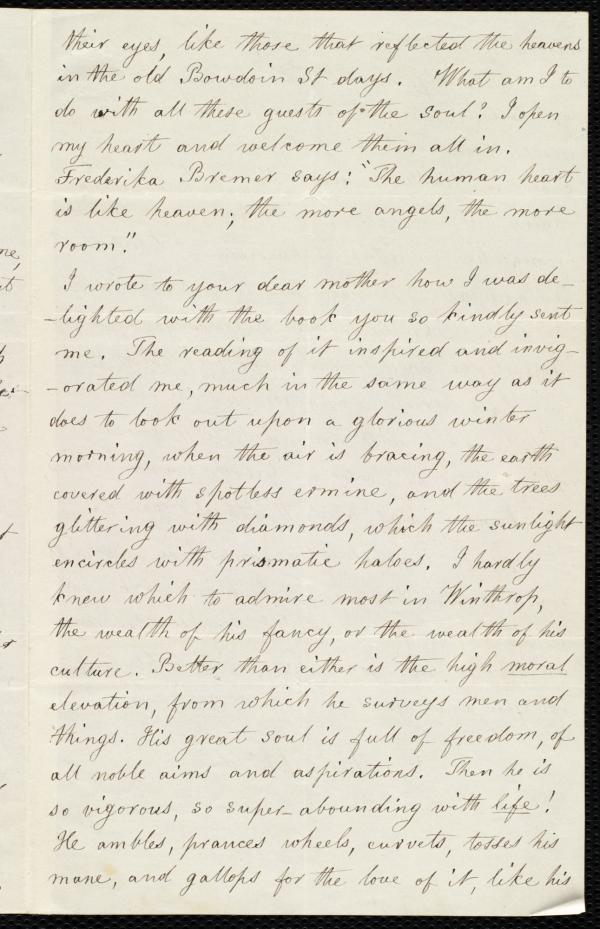 their eyes, like those that reflected the heavens
in the old Bowdoin St days. What am I to
do with all these guests of the soul? I open
my heart and welcome them all in.
Frederika Bremer says: "The human heart
is like heaven; the more angels, the more
room."
I wrote to your dear mother how I was de-
-lighted with the book you so kindly sent
me. The reading of it inspired and invig-
-orated me, much in the same way as it
does to look out upon a glorious winter
morning, when the air is bracing, the earth
covered with spotless ermine, and the trees
glittering with diamonds, which the sunlight
encircles with prismatic haloes. I hardly
knew which to admire most in Winthrop,
the wealth of his fancy, or the wealth of his
culture. Better than either is the high moral
elevation, from which he surveys men and
things. His great soul is full of freedom, of
all noble aims and aspirations. Then he is
so vigorous, so super-abounding with life!
He ambles, prances wheels, curvets, tosses his
mane, and gallops for the love of it, like his